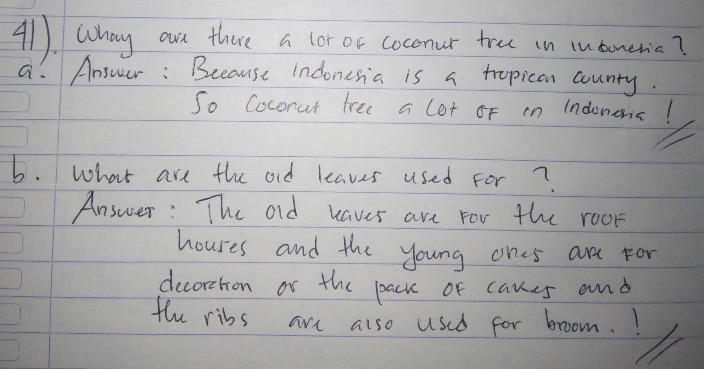 41). Whay are there a lot of coconut tree in indonesia?
a. Answer : Because Indonesia is a tropican county.
So Coconut tree a lot of in Indonesia !
b. What are the old leaves used for ?
Answer : The old leaves are for the roof
houses and the young ones are for
decoretion or the pack of cakes and
the ribs are also used for broom. !